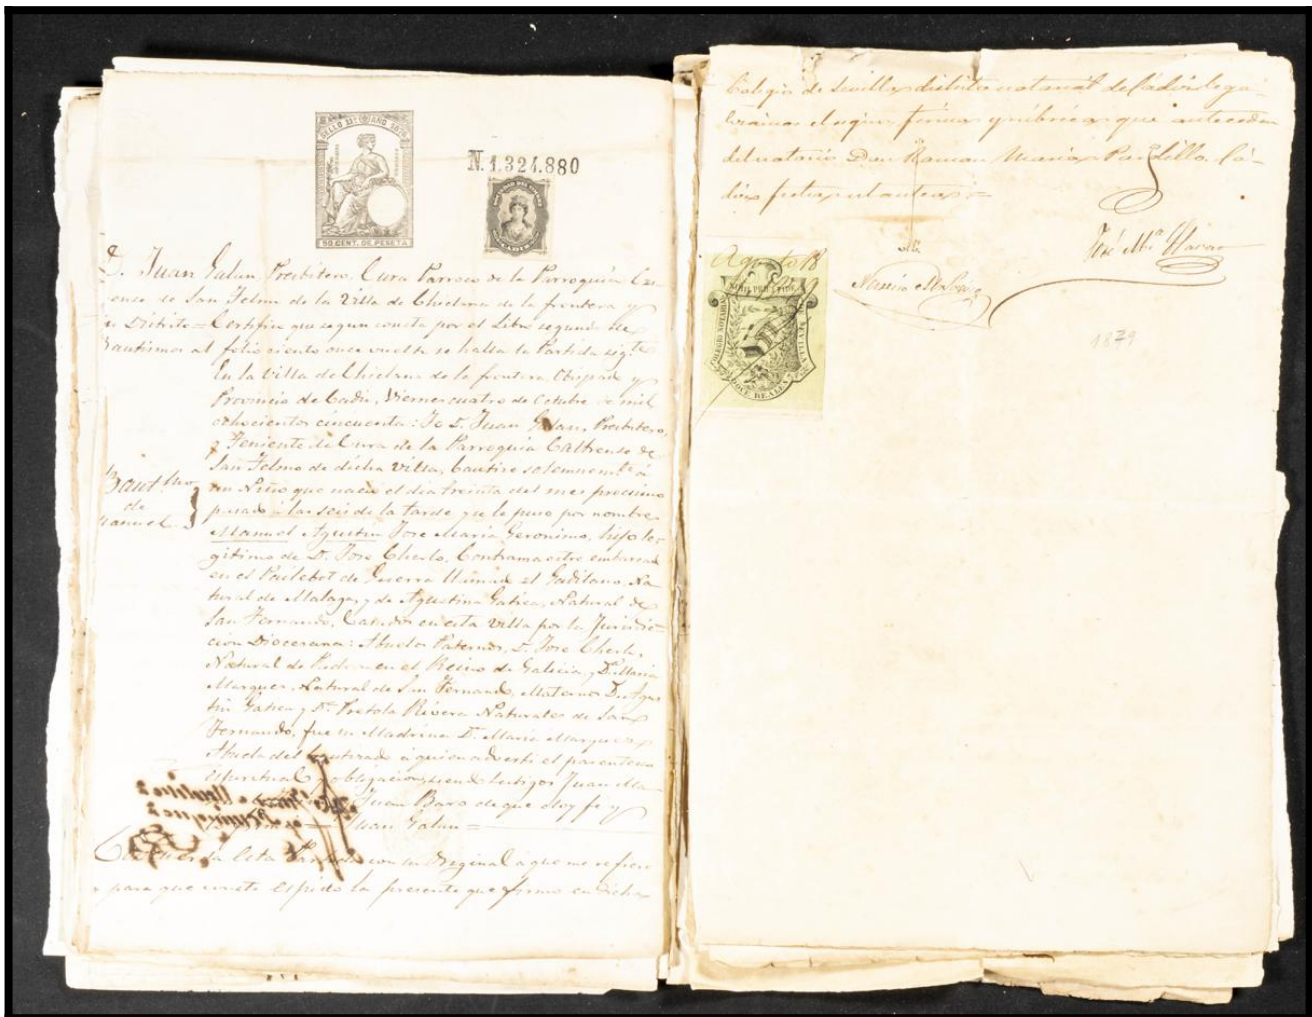 SELLO 11º AÑO 1879
50 CENT. DE PESETA
N. 1.324.880
D. Juan Galan, Presbitero, Cura Parroco de la Parroquia Cas-
trense de San Telmo de la Villa de Chiclana de la frontera y
su Distrito = Certifico que segun consta por el Libro segundo de
Bautismos al folio ciento once vuelto se halla la Partida sigte
En la Villa de Chiclana de la frontera, Obispado y
Provincia de Cadiz, Viernes cuatro de Octubre de mil
ochocientos cincuenta: Yo D. Juan Galan, Presbitero,
y Teniente de Cura de la Parroquia Castrense de
San Telmo de dicha Villa, bautice solemnemte á
un Niño que nació el dia treinta del mes procsimo
pasado á las seis de la tarde que le puso por nombre
Manuel Agustin Jose Maria Geronimo, hijo le-
gitimo de D. Jose Cherlo, Contramaestre embarcado
en el Pailebot de Guerra llamado el Gaditano, Na-
tural de Malaga, y de Agustina Gatica, Natural de
San Fernando, Casados en esta Villa por la Juridic-
cion Diocesana: Abuelos Paternos, D. Jose Cherlo,
Natural de en el Reino de Galicia, y Dª Maria
Marquez, Natural de San Fernando, Maternos D. Agus-
tin Gatica y Dª Rivera Naturales de San
Fernando, fue su Madrina Dª Maria Marquez
Abuela del bautizado á quien adverti el parentesco
espiritual y obligaciones, siendo testigos Juan
Juan Baro de que doy fe y
Juan Galan =
Bautmo
de
Manuel
Concuerda esta Partida con su Original á que me refiero
y para que conste espido la presente que firmo en dicha
Colegio de Sevilla, distrito notarial de Cadiz lega-
lizamos el signo, firma y rúbrica que anteceden
del notario Don Ramon Maria Pardillo. Cá-
diz fecha ut antea =
José Mª
Agosto 18
NIHIL PRIUS FIDE
COLEGIO NOTARIAL
SEVILLA
DOCE REALES
1879